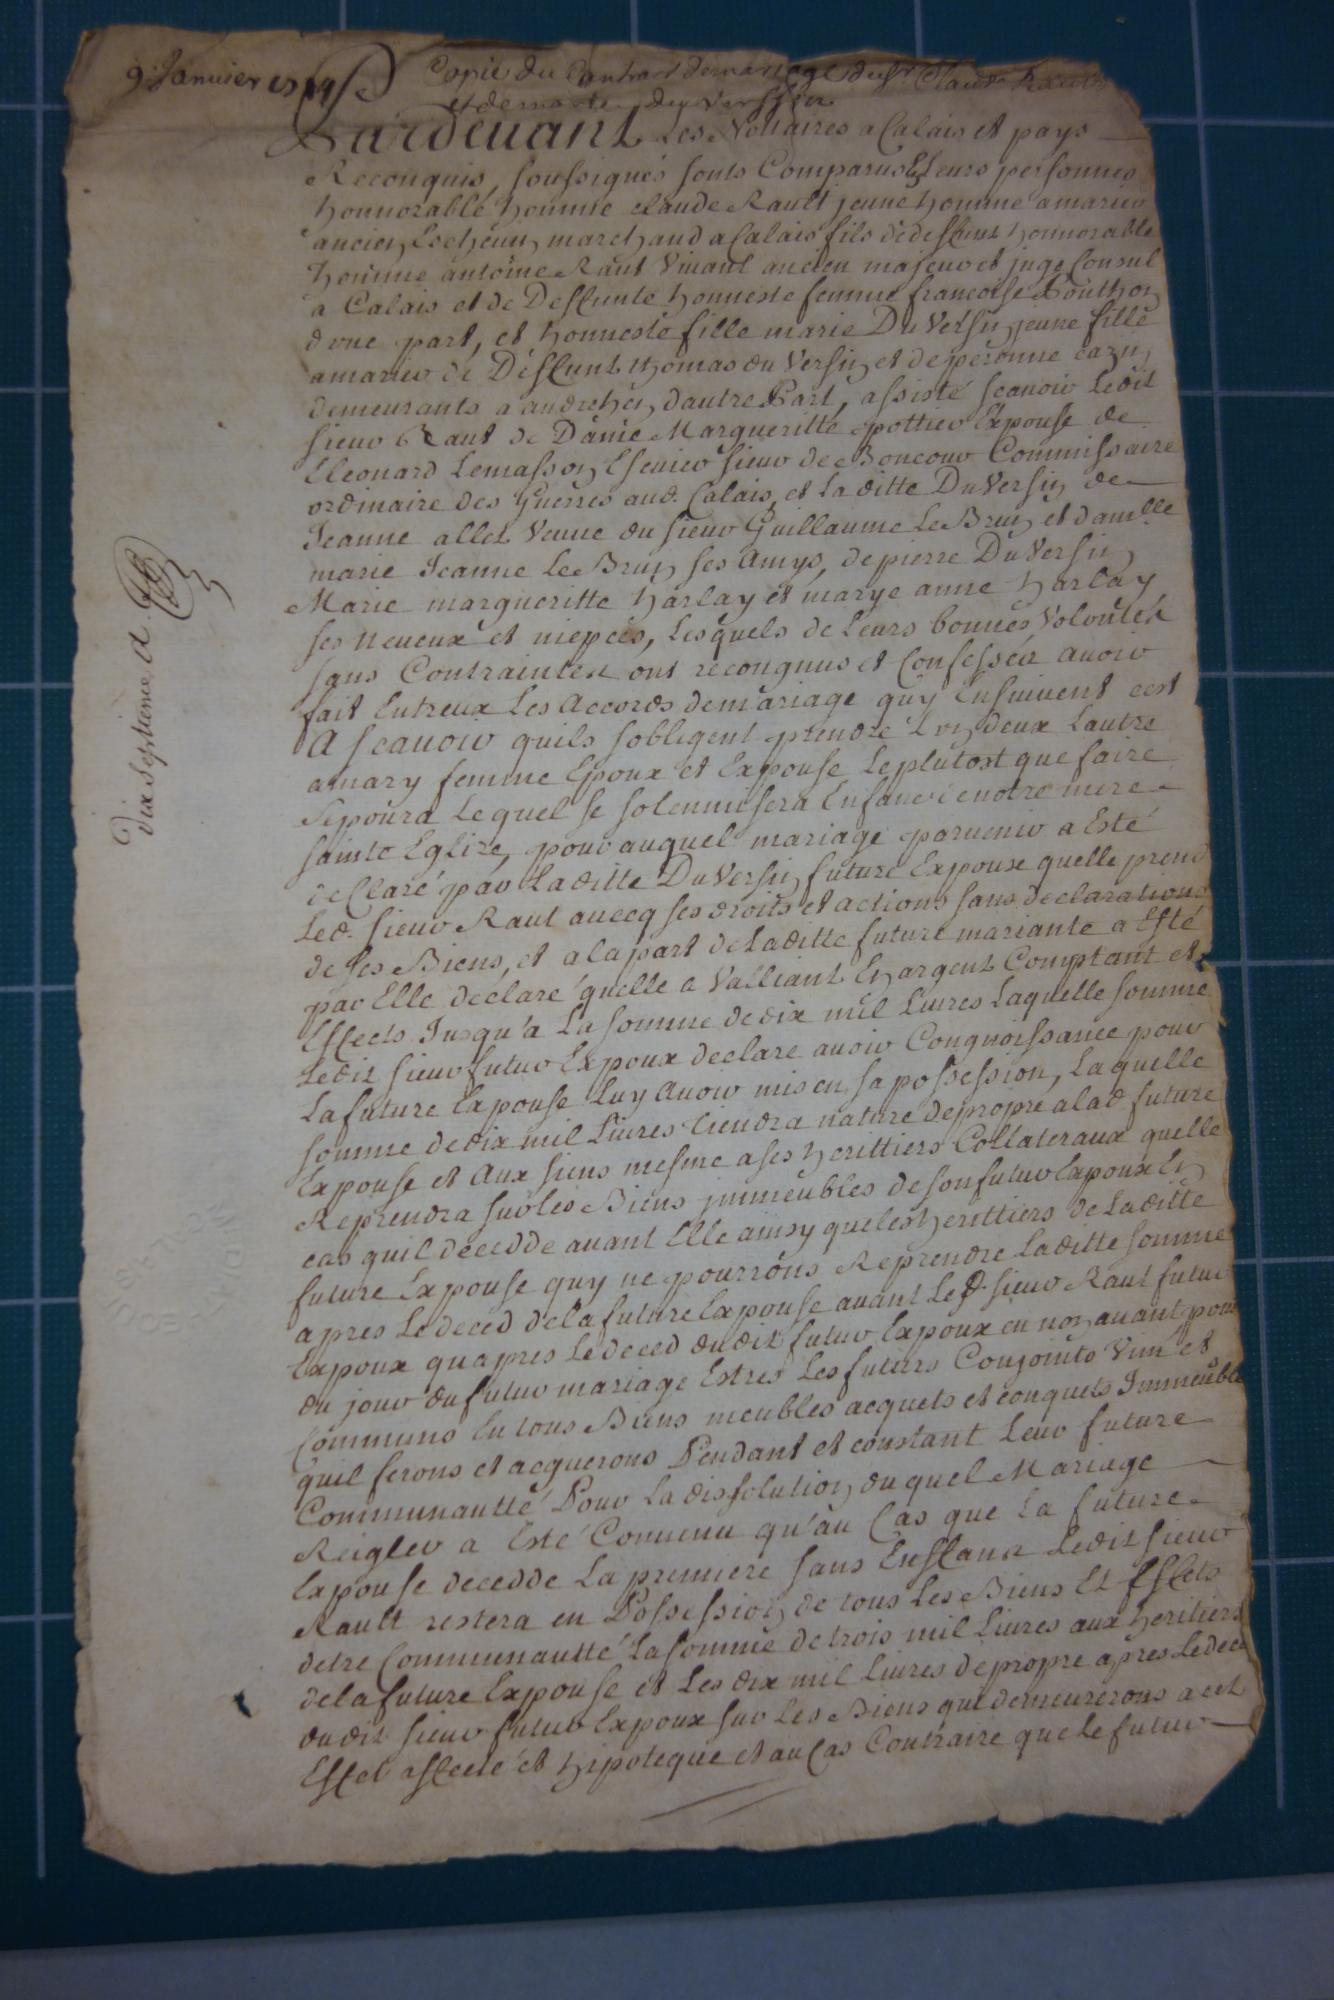 9 Janvier
Copie du Contract de mariage du Sr. Claude Rault
et de marie du Versin
Pardevant Les Nottaires a Calais et pays
Reconquis, soussignés sonts Comparus En Leurs personnes
honnorable homme claude Rault jeune homme a marier
ancien Eschevin marchand a Calais fils de deffunt honnorable
homme antoine Raut Vivant ancien majeur et juge Consul
a Calais et de Deffunte honneste femme francoise Bouthon
dune part, et honneste fille marie Du Versin jeune fille
a marier de Deffunt thomas du Versin et de peronne cazin
demeurants a andrehen dautre Part, assisté scavoir Ledit
sieur Raut de Dame Margueritte pottier Expouse de
Eleonard Lemasson Escuier sieur de Boncour Commissaire
ordinaire des Guerres aud. Calais, et La ditte Du Versin de
Jeanne allet Veuve du sieur Guillaume Le Brun et damlle
marie Jeanne Le Brun ses amys, de pierre Du Versin
Marie margueritte harlay et marye anne harlay
ses neveux et niepces, Lesquels de Leurs bonnes Volontéz
sans Contraintes ont recongnus et Confesséz avoir
fait Entreux Les Accords de mariage quy Ensuivent cest
A scavoir quils sobligent prendre Lun deux Lautre
a mary femme Epoux et Expouse Le plutost que faire
se poura Lequel se solemnisera En face de notre mere
sainte Eglize, pour auquel mariage parvenir a Esté
declaré par La ditte Du Versin future Expouse quelle prend
Led. sieur Raut avecq ses droits et actions sans declarations
de ses Biens, et a la part de La ditte future mariante a Esté
par Elle declaré quelle a Valliant En argent Comptant et
Effects Jusqu'a La somme de dix mil Livres Laquelle somme
Ledit sieur futur Expoux declare avoir Congnoissance pour
La future Expouse Luy avoir mis en sa possession, Laquelle
somme de dix mil Livres tiendra nature de propre a lad. future
Expouse et Aux siens mesme a ses herittiers Collateraux quelle
Reprendra sur les Biens jmmeubles de son futur Expoux En
cas quil decedde avant Elle ainsy que les herittiers de La ditte
future Expouse quy ne pourrons Reprendre La ditte somme
apres Le deced de la future Expouse avant Led. sieur Raut futur
Expoux quapres Le deced dudit futur Expoux en non avant pour
du jour du futur mariage Estres Les futurs Conjoints Vnis et
Communs En tous Biens meubles acquets et conquets Jmmeubles
quil ferons et acquerons Pendant et constant Leur future
Communautté Pour La dissolution duquel Mariage
Reigler a Esté Convenu qu'au Cas que La future
Expouse decedde La premiere sans Enffans Ledit sieur
Rault restera en Possession de tous Les Biens Et Effets
detre Communautté La somme de trois mil Livres aux heritiers
de la future Expouse et Les dix mil Livres de propre apres Le deced
dudit sieur futur Expoux sur Les Biens qui demeurerons a cet
Effet affecté et hipoteque et au Cas Contraire que Le futur
dix septieme, A